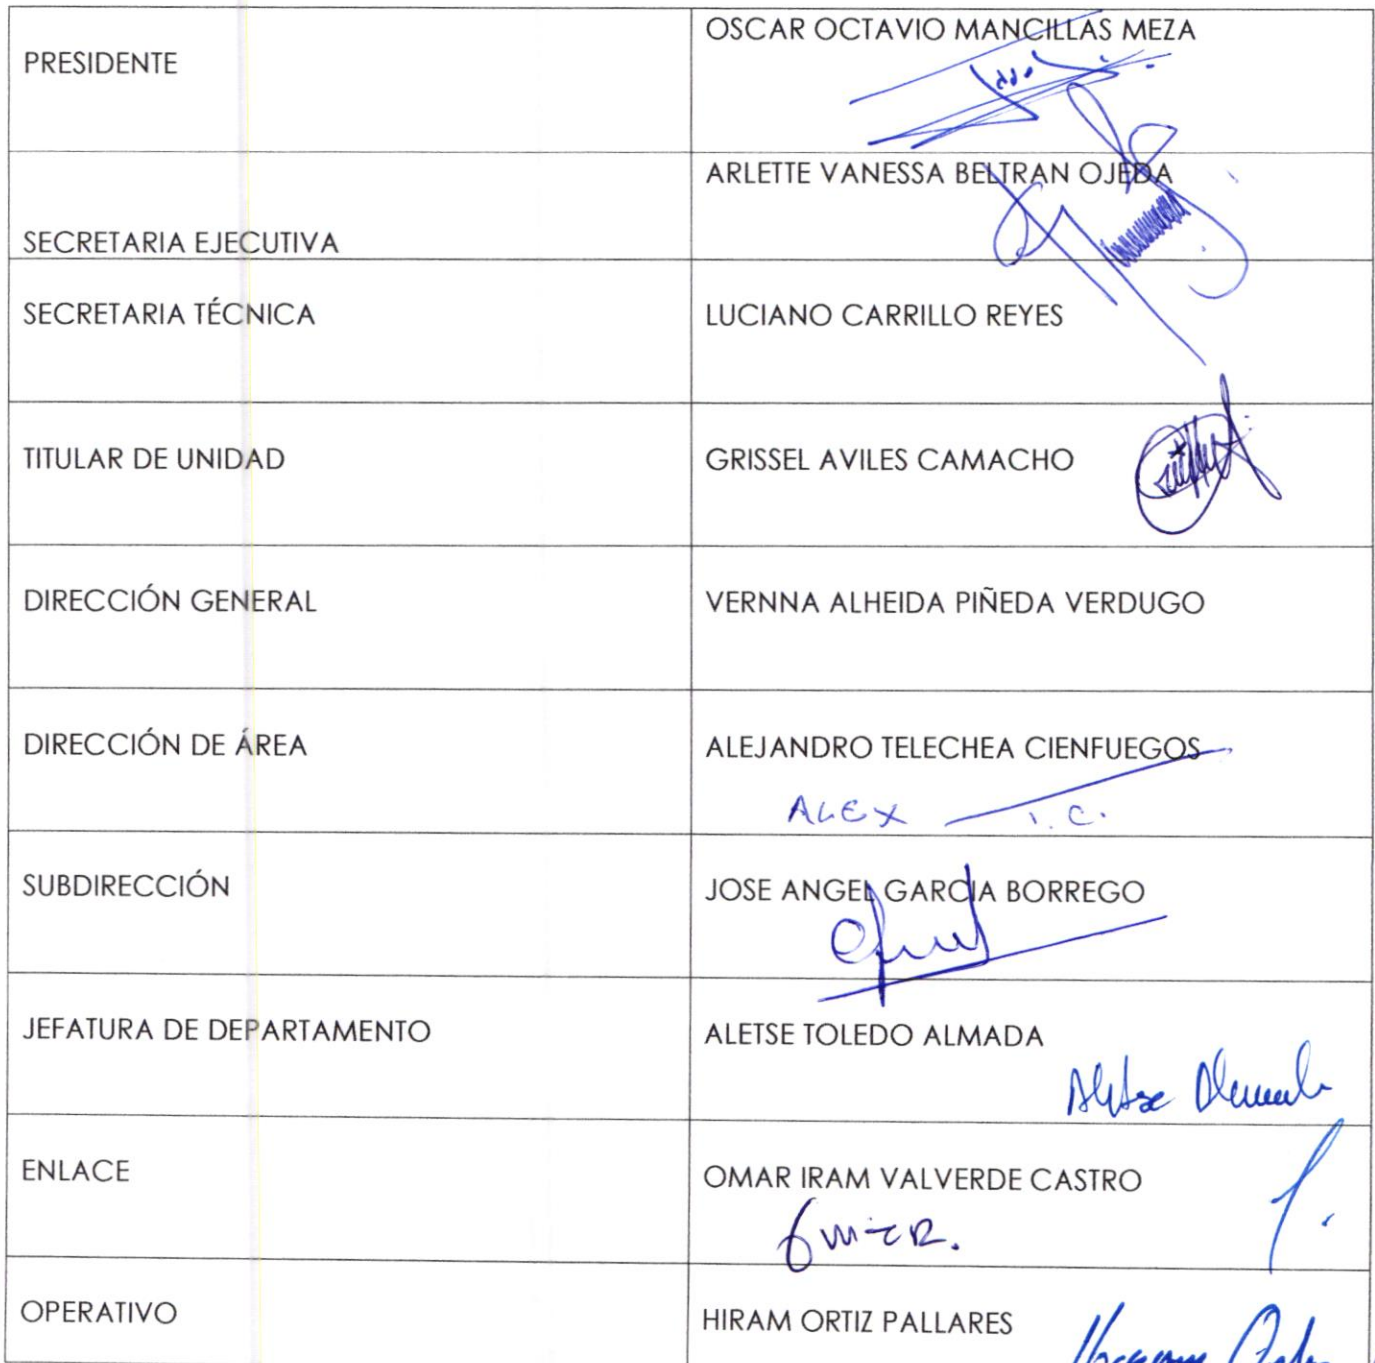 PRESIDENTE
OSCAR OCTAVIO MANCILLAS MEZA
SECRETARIA EJECUTIVA
ARLETTE VANESSA BELTRAN OJEDA
SECRETARIA TÉCNICA
LUCIANO CARRILLO REYES
TITULAR DE UNIDAD
GRISSEL AVILES CAMACHO
DIRECCIÓN GENERAL
VERNNA ALHEIDA PIÑEDA VERDUGO
DIRECCIÓN DE ÁREA
ALEJANDRO TELECHEA CIENFUEGOS
ALEX T. C.
SUBDIRECCIÓN
JOSE ANGEL GARCIA BORREGO
JEFATURA DE DEPARTAMENTO
ALETSE TOLEDO ALMADA
ENLACE
OMAR IRAM VALVERDE CASTRO
OPERATIVO
HIRAM ORTIZ PALLARES